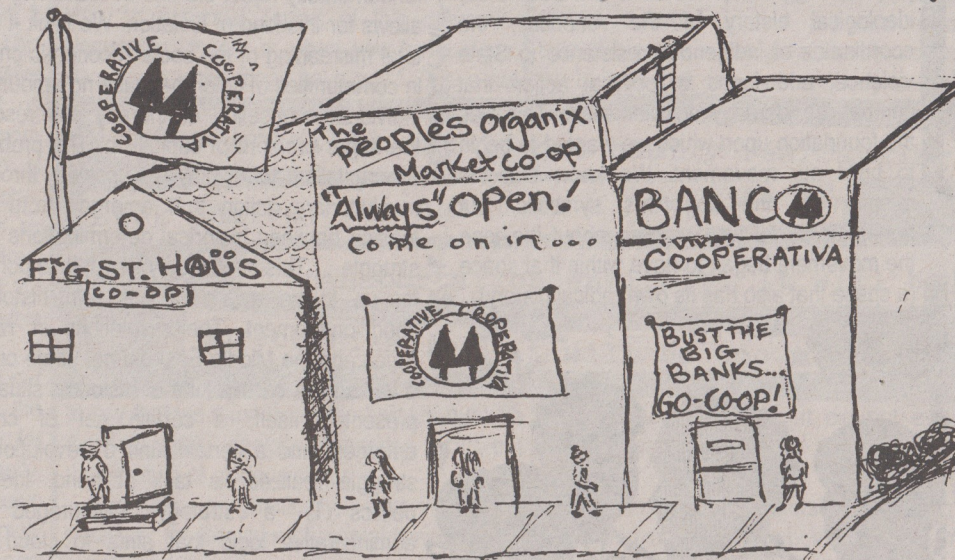 COOPERATIVE COOPERATIVA
FIG ST. HAÜS
CO-OP
The
People's Organix
Market Co-op
"Always" Open!
Come on in...
COOPERATIVE COOPERATIVA
BANCO
VIVA!
CO-OPERATIVA
BUST THE
BIG
BANKS...
GO-CO-OP!